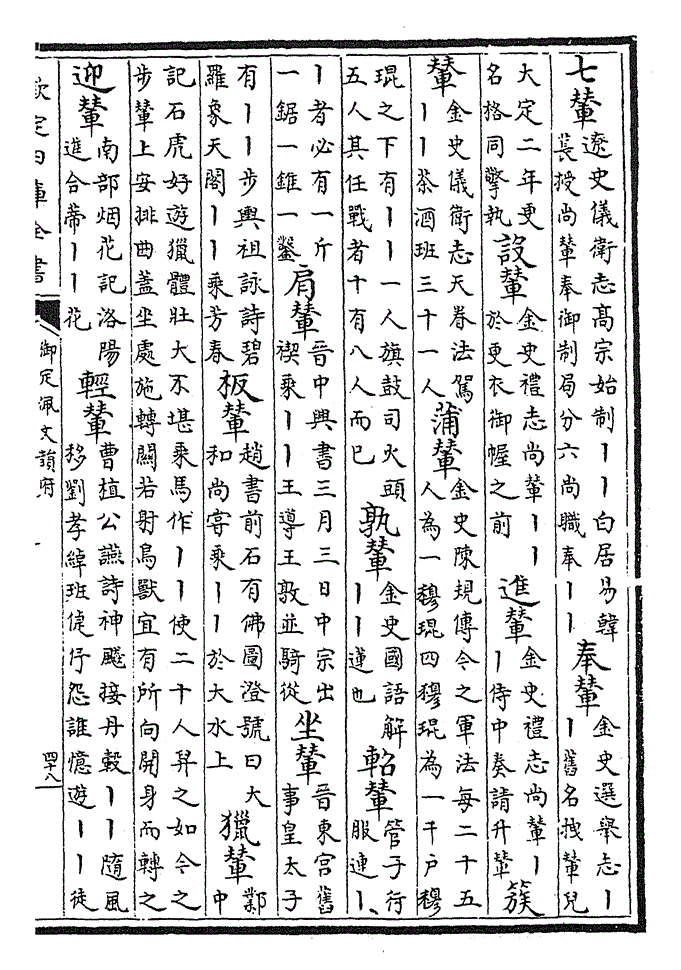 七輦
遼史儀衛志高宗始制丨丨白居易韓
萇授尚輦奉御制局分六尚職奉丨丨
奉輦
金史選舉志丨
丨舊名拽輦兒
大定二年更
名格同擎執
設輦
金史禮志尚輦丨丨
於更衣御幄之前
進輦
金史禮志尚輦丨
丨侍中奏請升輦
簇
輦
金史儀衛志天眷法駕
丨丨茶酒班三十一人
蒲輦
金史陳規傳令之軍法每二十五
人為一穆琨四穆琨為一千户穆
琨之下有丨丨一人旗鼓司火頭
五人其任戰者十有八人而已
孰輦
金史國語解
丨丨蓮也
軺輦
管子行
服連丨、
丨者必有一斤
一鋸一錐一鑿
肩輦
晉中興書三月三日中宗出
禊乘丨丨王導王敦並騎從
坐輦
晉東宮舊
事皇太子
有丨丨步輿祖詠詩碧
羅象天閣丨丨乘芳春
板輦
趙書前石有佛圖澄號曰大
和尚甞乘丨丨於大水上
獵輦
鄴
中
記石虎好遊獵體壯大不堪乘馬作丨丨使二十人舁之如今之
步輦上安排曲蓋坐處施轉關若射鳥獸宜有所向關身而轉之
迎輦
南部烟花記洛陽
進合蒂丨丨花
輕輦
曹植公讌詩神飈接丹轂丨丨隨風
移劉孝綽班倢伃怨誰憶遊丨丨徒
欽定四庫全書
御定佩文韻府
四十八